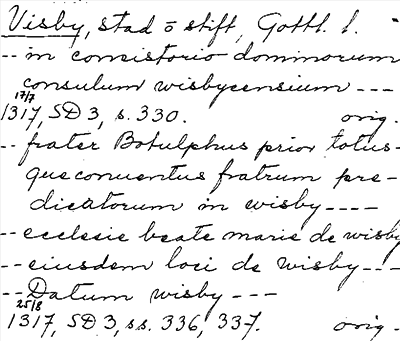 Visby, stad o stift, Gottl. l.
-- in consistorio dominorum
consulum wisbycensium ---
17/7
1317, SD 3, s. 330. orig.
-- frater Botulphus prior totus-
que conuentus fratrum pre-
dicatorum in wisby ----
-- ecclesie beate marie de wisby
-- eiusdem loci de wisby ---
-- Datum wisby ---
25/8
1317, SD 3, ss. 336, 337. orig.